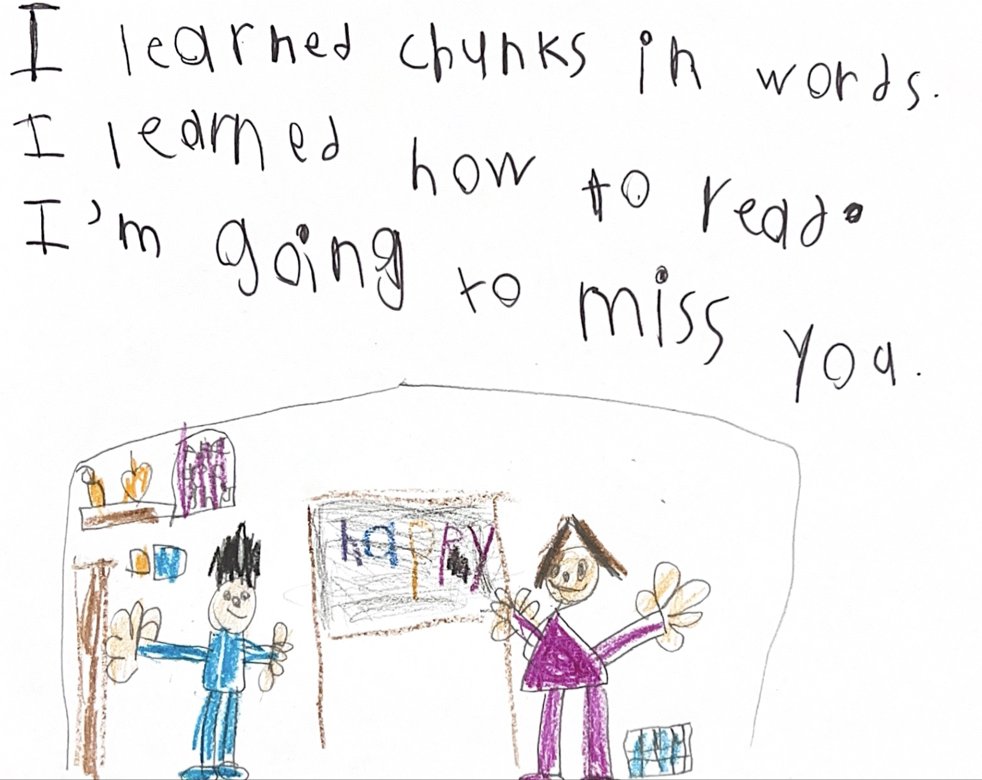 I learned chunks in words.
I learned how to read.
I'm going to miss you.
happy